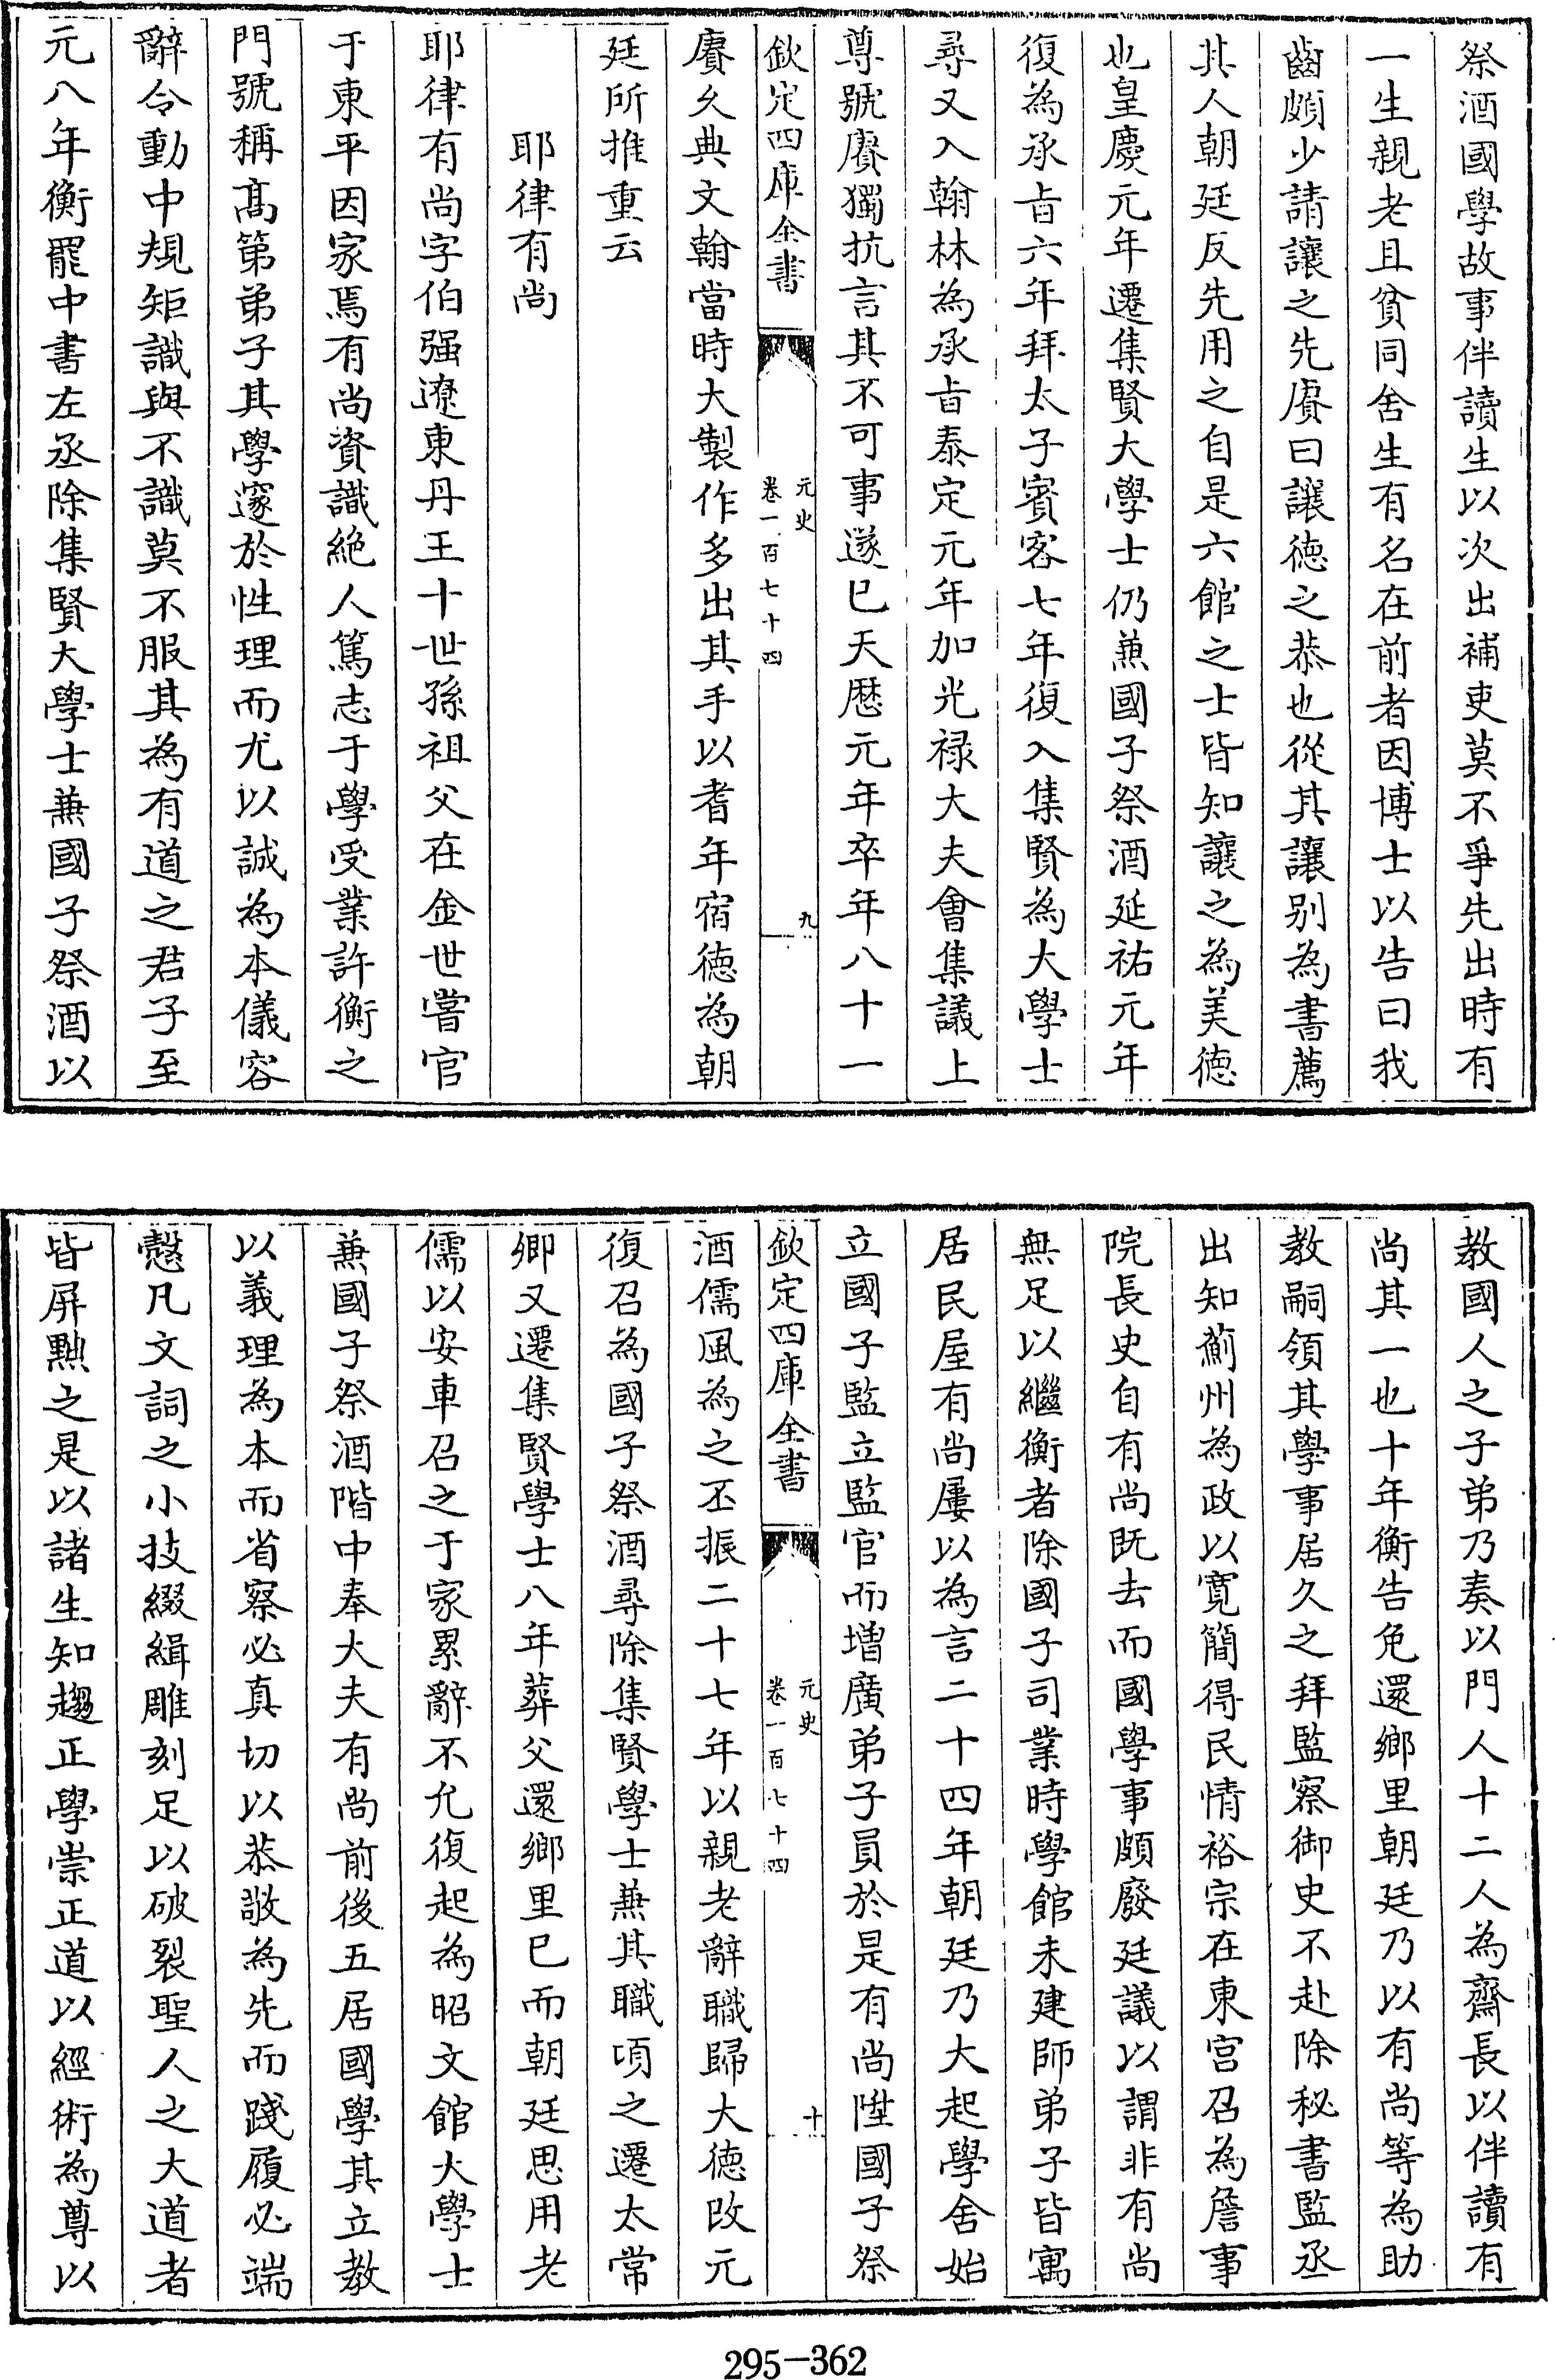 祭酒國學故事伴讀生以次出補吏莫不爭先出時有
一生親老且貧同舍生有名在前者因博士以告曰我
齒頗少請讓之先賡曰讓徳之恭也從其讓别為書薦
其人朝廷反先用之自是六館之士皆知讓之為美徳
也皇慶元年遷集賢大學士仍兼國子祭酒延祐元年
復為承㫖六年拜太子賓客七年復入集賢為大學士
尋又入翰林為承㫖泰定元年加光禄大夫會集議上
尊號賡獨抗言其不可事遂已天厯元年卒年八十一
欽定四庫全書
元史
卷一百七十四
九
賡久典文翰當時大製作多出其手以耆年宿徳為朝
廷所推重云
耶律有尚
耶律有尚字伯强遼東丹王十世孫祖父在金世嘗官
于東平因家焉有尚資識絶人篤志于學受業許衡之
門號稱髙第弟子其學邃於性理而尤以誠為本儀容
辭令動中規矩識與不識莫不服其為有道之君子至
元八年衡罷中書左丞除集賢大學士兼國子祭酒以
教國人之子弟乃奏以門人十二人為齋長以伴讀有
尚其一也十年衡告免還鄉里朝廷乃以有尚等為助
教嗣領其學事居久之拜監察御史不赴除秘書監丞
出知薊州為政以寛簡得民情裕宗在東宫召為詹事
院長史自有尚既去而國學事頗廢廷議以謂非有尚
無足以繼衡者除國子司業時學館未建師弟子皆寓
居民屋有尚屢以為言二十四年朝廷乃大起學舍始
立國子監立監官而増廣弟子員於是有尚陞國子祭
欽定四庫全書
元史
卷一百七十四
十
酒儒風為之丕振二十七年以親老辭職歸大徳改元
復召為國子祭酒尋除集賢學士兼其職頃之遷太常
卿又遷集賢學士八年葬父還鄉里已而朝廷思用老
儒以安車召之于家累辭不允復起為昭文館大學士
兼國子祭酒階中奉大夫有尚前後五居國學其立教
以義理為本而省察必真切以恭敬為先而踐履必端
慤凡文詞之小技綴緝雕刻足以破裂聖人之大道者
皆屏黜之是以諸生知趨正學崇正道以經術為尊以
295-362